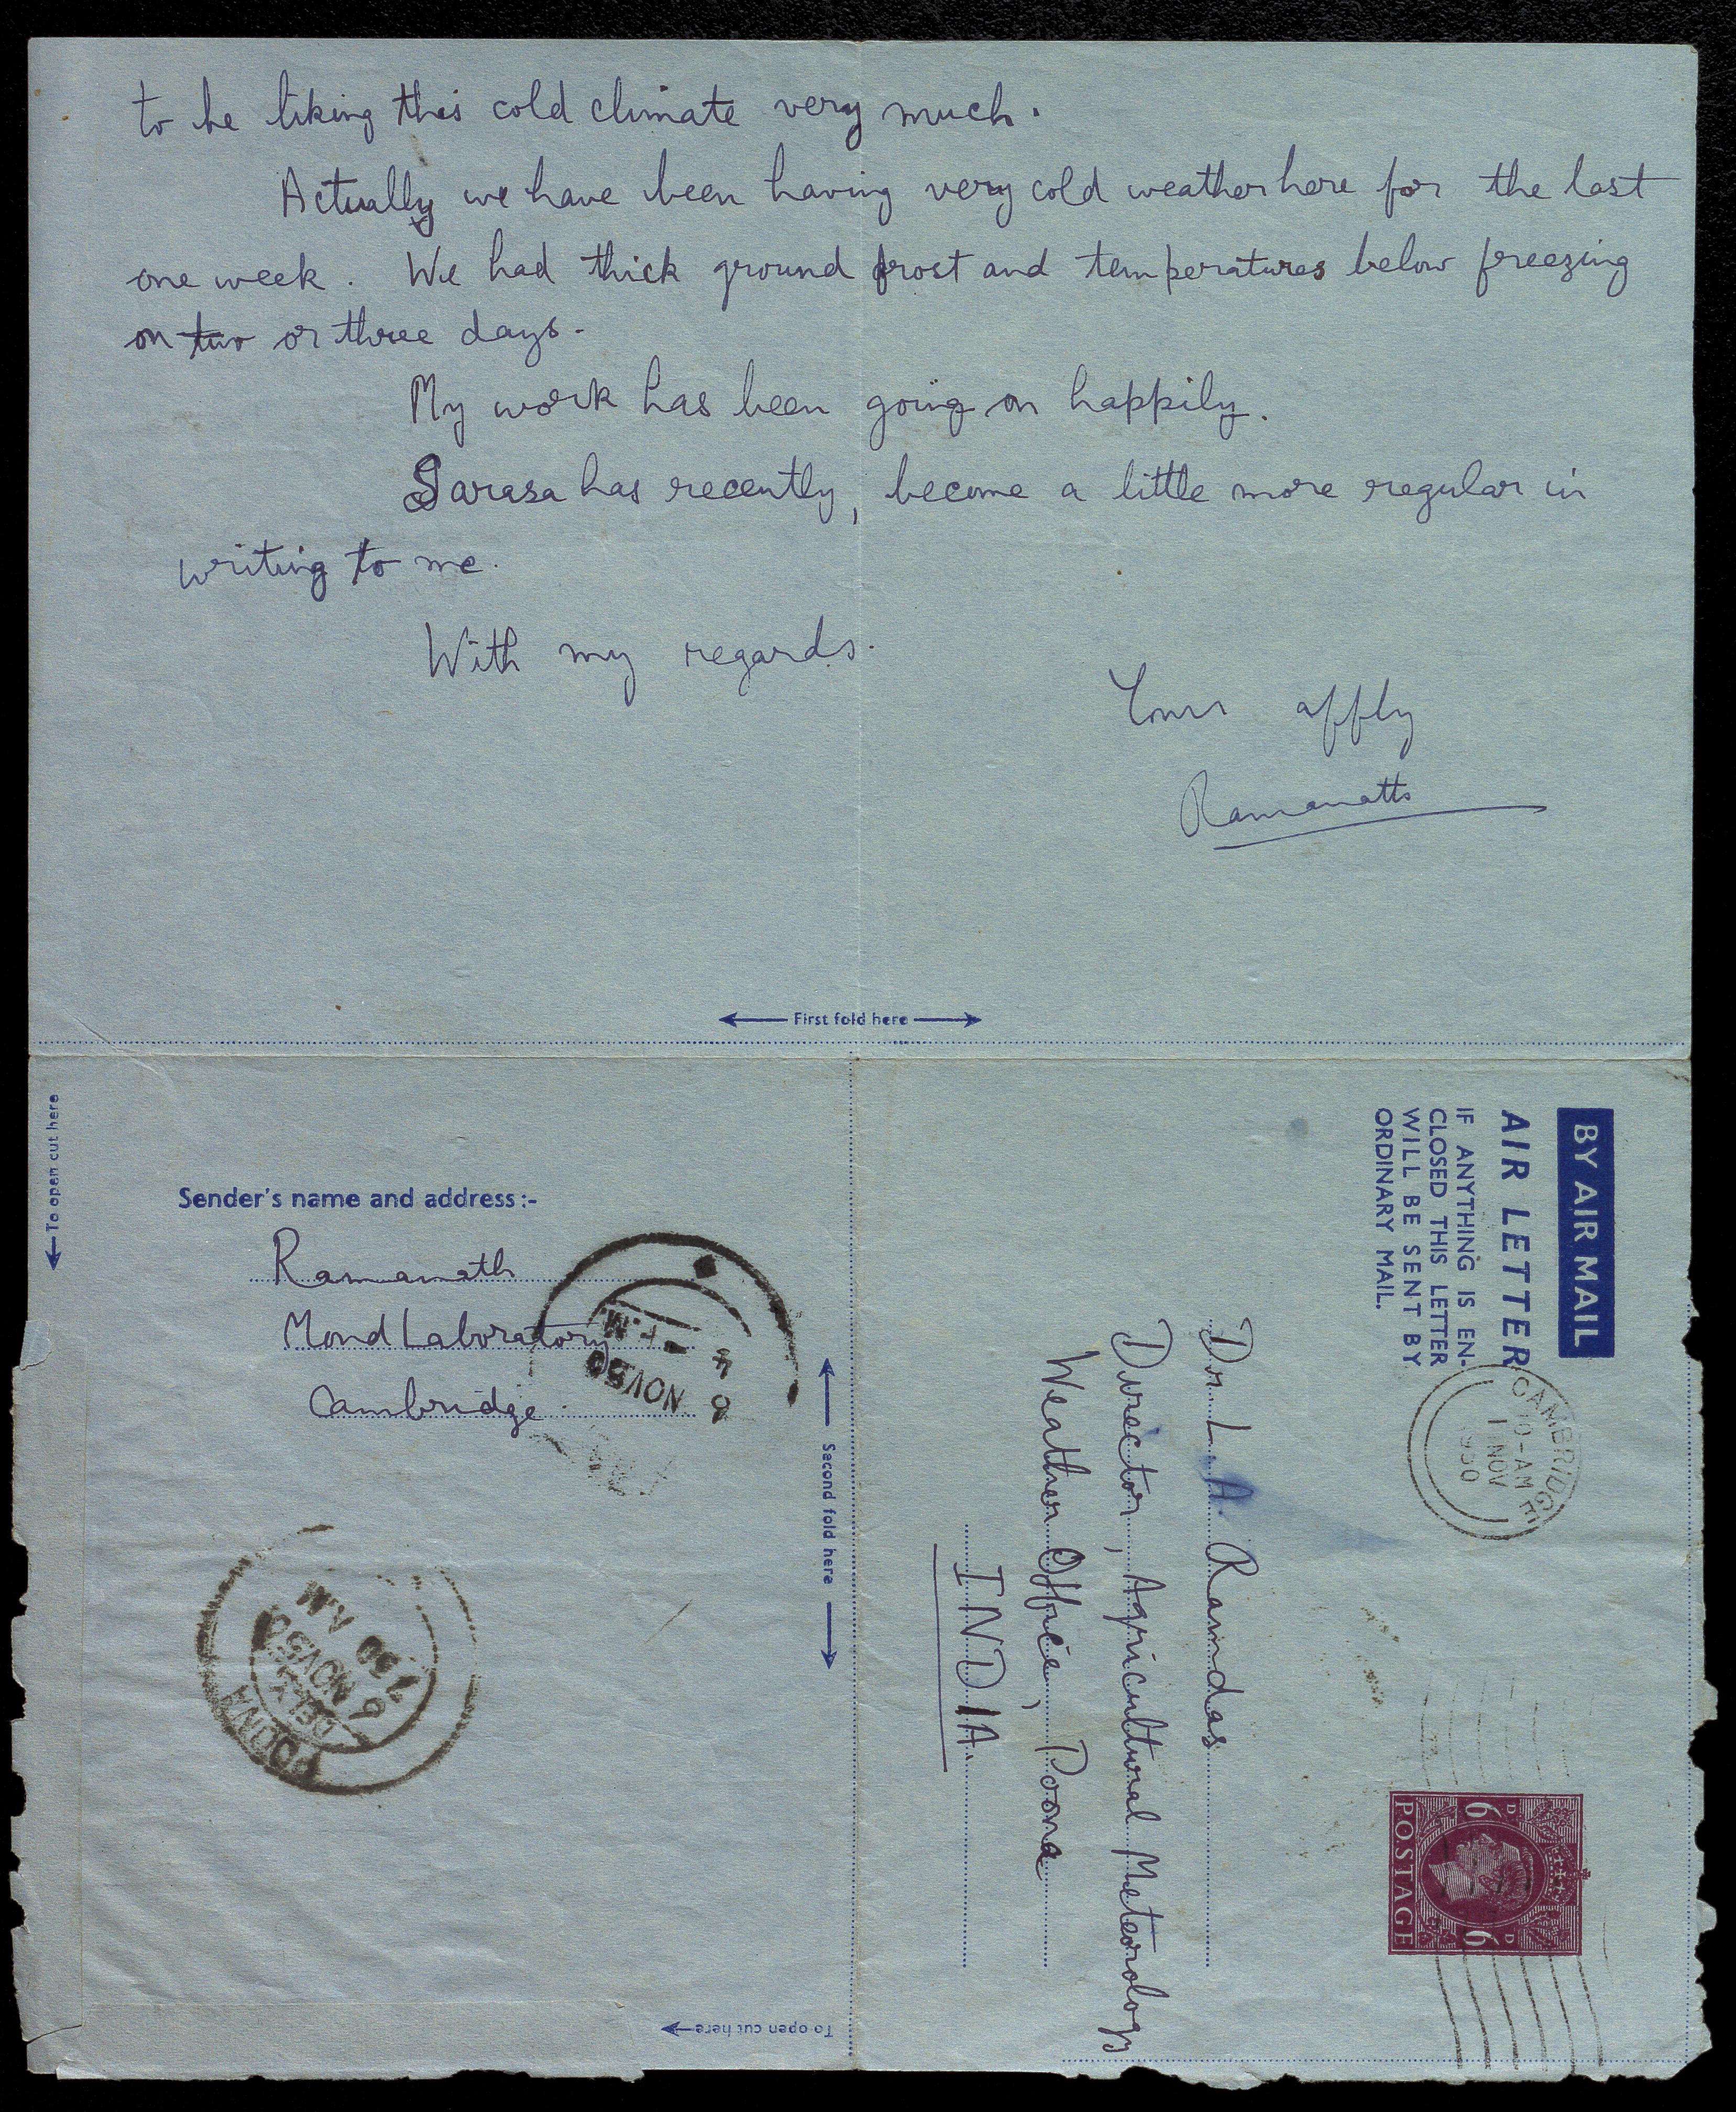 to be liking this cold climate very much.
Actually we have been having very cold weather here for the last
one week. We had thick ground frost and temperatures below freezing
on two or three days.
My work has been going on happily.
Sarasa has recently, become a little more regular in
writing to me.
With my regards.
Yours affly
Ramanath
First fold here
To open cut here
Sender's name and address:-
Ramanath
Mond Laboratory
Cambridge.
6 NOV 50
Second fold here
POONA
DELY.
6 NOV 50
7 30 AM
To open cut here
BY AIR MAIL
AIR LETTER
IF ANYTHING IS EN-
CLOSED THIS LETTER
WILL BE SENT BY
ORDINARY MAIL.
CAMBRIDGE
10-AM
1 NOV
1950
6D 6D
POSTAGE
Dr. L. A. Ramdas
Director, Agricultural Meteorology
Weather Office, Poona
INDIA.